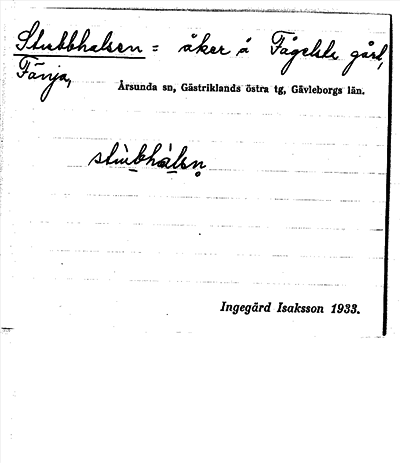 Stubbhalsen = åker å Fågelsta gård,
Fänja,
Årsunda sn, Gästriklands östra tg, Gävleborgs län.
stùbhàlsn̥
Ingegärd Isaksson 1933.